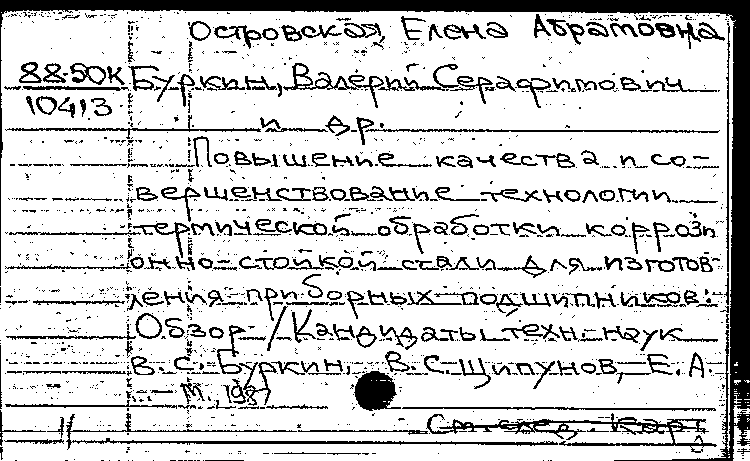 Островская, Елена Абрамовна
88-50К Буркин, Валерий Серафимович
10413
и др.
Повышение качества и со-
вершенствование технологии
термической обработки коррози
онно-стойкой стали для изготов-
ления приборных подшипников:
Обзор / Кандидаты техн. наук
В. С. Буркин, В. С. Щипунов, Е. А.
... - М., 1987
11 См. след. карт